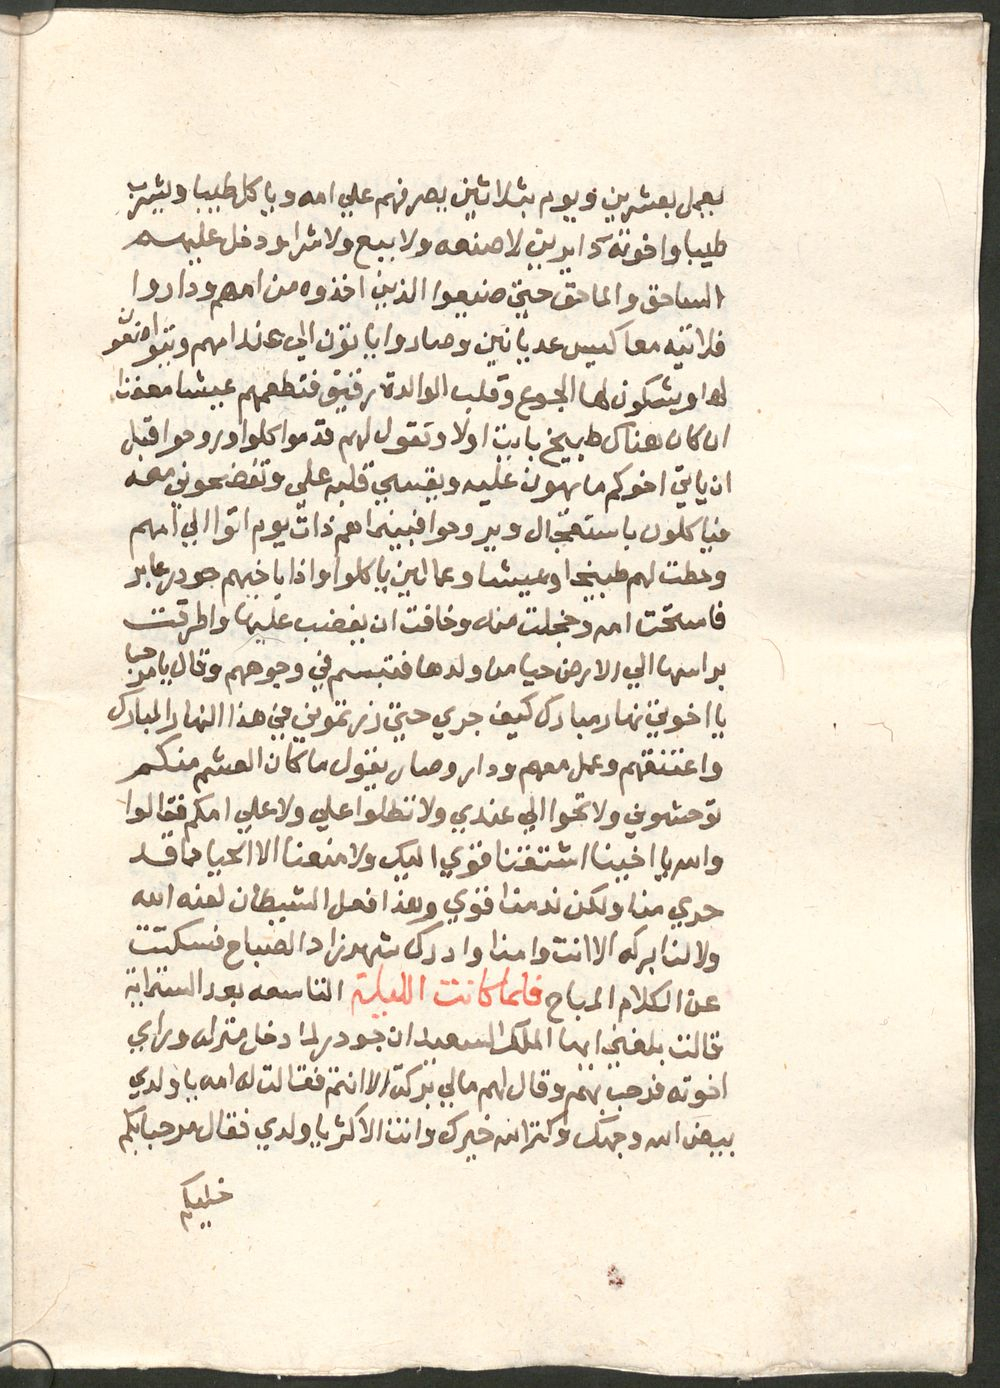 يعمل بعشرين ويوم بثلاثين يصرفهم علي امه وياكل طيبا ويشرب
طيبا واخوته دايرين لا صنعه ولا بيع ولا شرا ودخل عليهم
الساحق والماحق حتي ضيعوا الذين اخذوه من امهم وداروا
فلاتيه معاكيس عديانين وصاروا ياتون الي عند امهم ويتواضعون
لها ويشكون لها الجوع وقلب الوالدة رقيق فتطعمهم عيشا معفنا
ان كان هناك طبيخ بايت اولا وتقول لهم قدموا كلوا وروحوا قبل
ان ياتي اخوكم ما يهون عليه ويقسي قلبه علي وتفضحوني معه
فياكلون باستعجال ويروحوا فبينما هم ذات يوم اتوا الي امهم
وحطت لهم طبيخا وعيشا وعمالين ياكلوا واذا باخيهم جودر عابر
فاستحت امه وخجلت منه وخافت ان يغضب عليها واطرقت
براسها الي الارض حيا من ولدها فتبسم في وجوههم وقال يا مرحبا
يا اخوتي نهار مبارك كيف جري حتي زرتموني في هذا النهار المبارك
واعتنقهم وعمل معهم ودار وصار يقول ما كان العشم منكم
توحشوني ولا تجوا الي عندي ولا تطلوا علي ولا علي امكم فقالوا
والله يا اخينا اشتقنا قوي اليك ولا منعنا الا الحيا مما قد
جري منا ولكن ندمنا قوي وهذا فعل الشيطان لعنه الله
ولا لنا بركه الا انت وامنا وادرك شهرزاد الصباح فسكتت
عن الكلام المباح فلما كانت الليلة التاسعه بعد الستماية
قالت بلغني ايها الملك السعيد ان جودر لما دخل منزله وراي
اخوته فرحب بهم وقال لهم مالي بركة الا انتم فقالت له امه يا ولدي
بيض الله وجهك وكتر الله خيرك وانت الاكثر يا ولدي فقال مرحبا بكم
خليكم